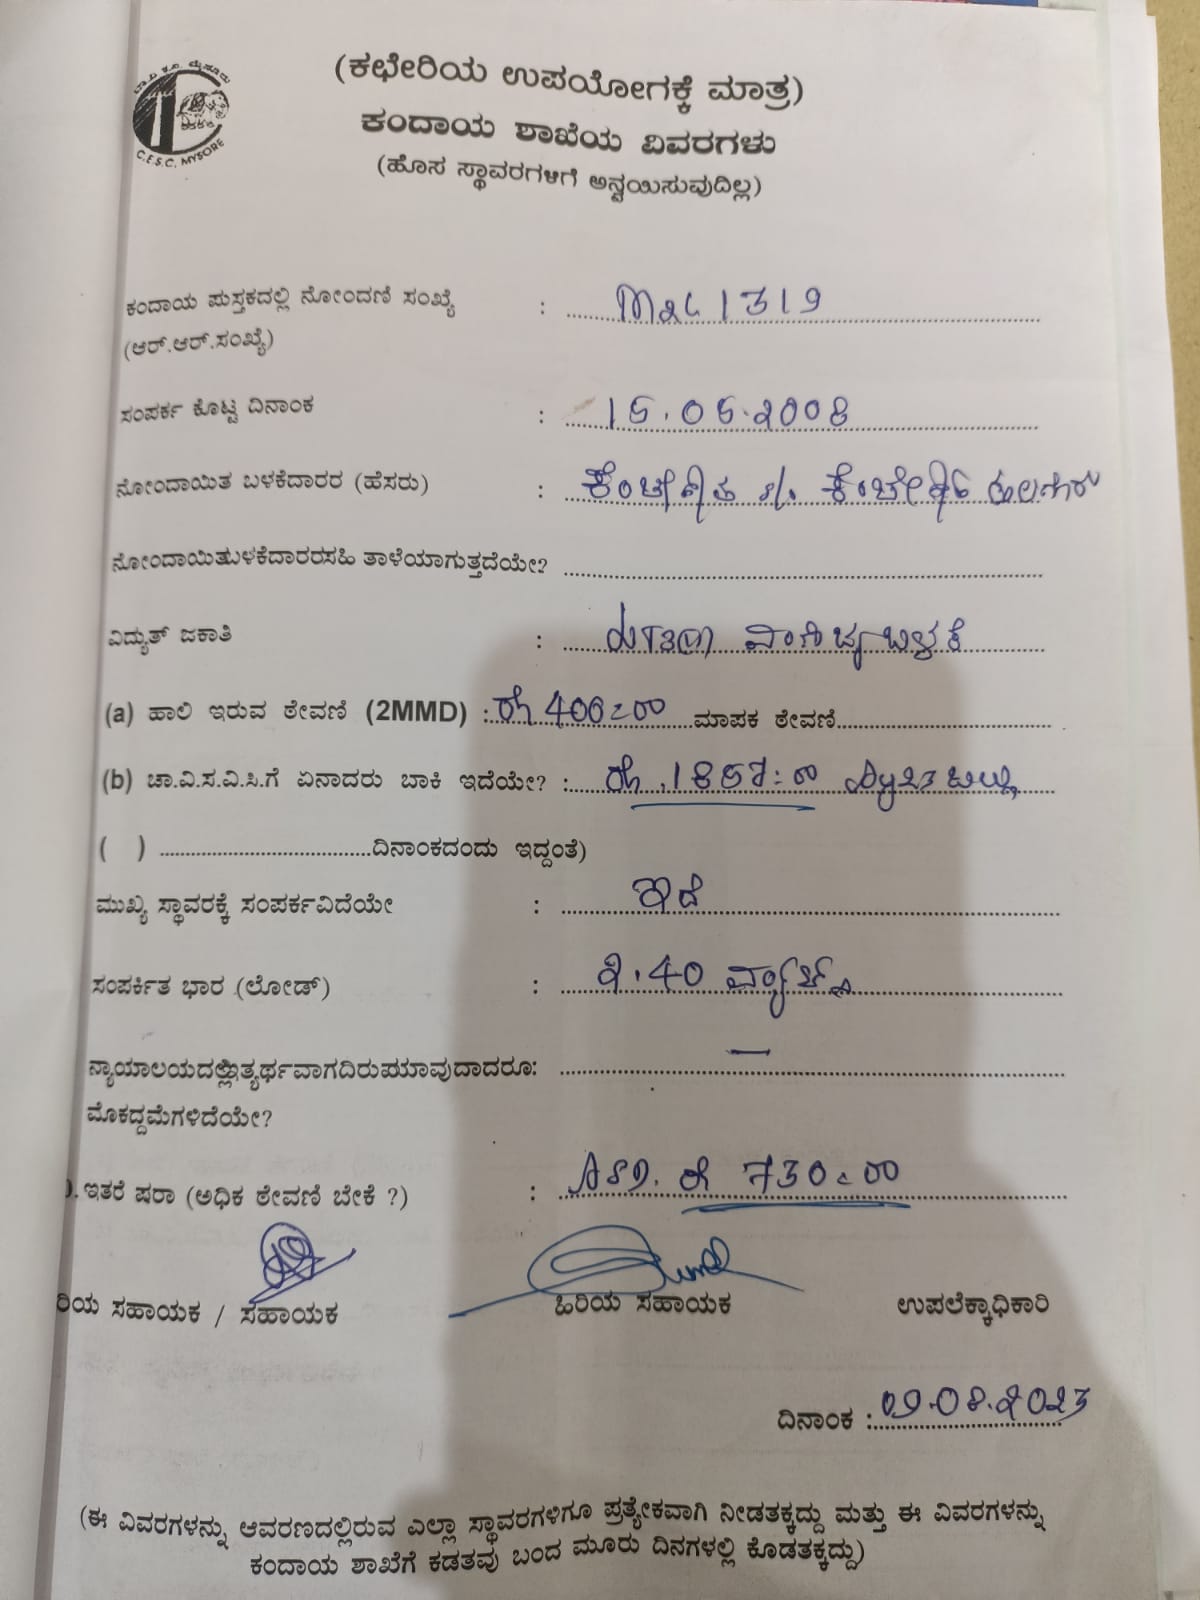 ಚಾ.ವಿ.ಸ.ನಿ. ಮೈಸೂರು
C.E.S.C. MYSORE
(ಕಛೇರಿಯ ಉಪಯೋಗಕ್ಕೆ ಮಾತ್ರ)
ಕಂದಾಯ ಶಾಖೆಯ ವಿವರಗಳು
(ಹೊಸ ಸ್ಥಾವರಗಳಿಗೆ ಅನ್ವಯಿಸುವುದಿಲ್ಲ)
ಕಂದಾಯ ಪುಸ್ತಕದಲ್ಲಿ ನೋಂದಣಿ ಸಂಖ್ಯೆ : 1319
(ಆರ್.ಆರ್.ಸಂಖ್ಯೆ)
ಸಂಪರ್ಕ ಕೊಟ್ಟ ದಿನಾಂಕ : .2008
ನೋಂದಾಯಿತ ಬಳಕೆದಾರರ (ಹೆಸರು) :
ನೋಂದಾಯಿತಬಳಕೆದಾರರಸಹಿ ತಾಳೆಯಾಗುತ್ತದೆಯೇ?
ವಿದ್ಯುತ್ ಜಕಾತಿ : ವಾಣಿಜ್ಯ ಬಳಕೆ
(a) ಹಾಲಿ ಇರುವ ಠೇವಣಿ (2MMD) : ರೂ 406=00 ಮಾಪಕ ಠೇವಣಿ
(b) ಚಾ.ವಿ.ಸ.ವಿ.ಸಿ.ಗೆ ಏನಾದರು ಬಾಕಿ ಇದೆಯೇ? : ರೂ.
( ) ದಿನಾಂಕದಂದು ಇದ್ದಂತೆ)
ಮುಖ್ಯ ಸ್ಥಾವರಕ್ಕೆ ಸಂಪರ್ಕವಿದೆಯೇ : ಇದೆ
ಸಂಪರ್ಕಿತ ಭಾರ (ಲೋಡ್) : 2.40
ನ್ಯಾಯಾಲಯದಲ್ಲಿಇತ್ಯರ್ಥವಾಗದಿರುವಯಾವುದಾದರೂ: —
ಮೊಕದ್ದಮೆಗಳಿದೆಯೇ?
).ಇತರೆ ಷರಾ (ಅಧಿಕ ಠೇವಣಿ ಬೇಕೆ ?) : ASD. ರೂ 730=00
ರಿಯ ಸಹಾಯಕ / ಸಹಾಯಕ ಹಿರಿಯ ಸಹಾಯಕ ಉಪಲೆಕ್ಕಾಧಿಕಾರಿ
ದಿನಾಂಕ : 09.08.2023
(ಈ ವಿವರಗಳನ್ನು ಆವರಣದಲ್ಲಿರುವ ಎಲ್ಲಾ ಸ್ಥಾವರಗಳಿಗೂ ಪ್ರತ್ಯೇಕವಾಗಿ ನೀಡತಕ್ಕದ್ದು ಮತ್ತು ಈ ವಿವರಗಳನ್ನು
ಕಂದಾಯ ಶಾಖೆಗೆ ಕಡತವು ಬಂದ ಮೂರು ದಿನಗಳಲ್ಲಿ ಕೊಡತಕ್ಕದ್ದು)